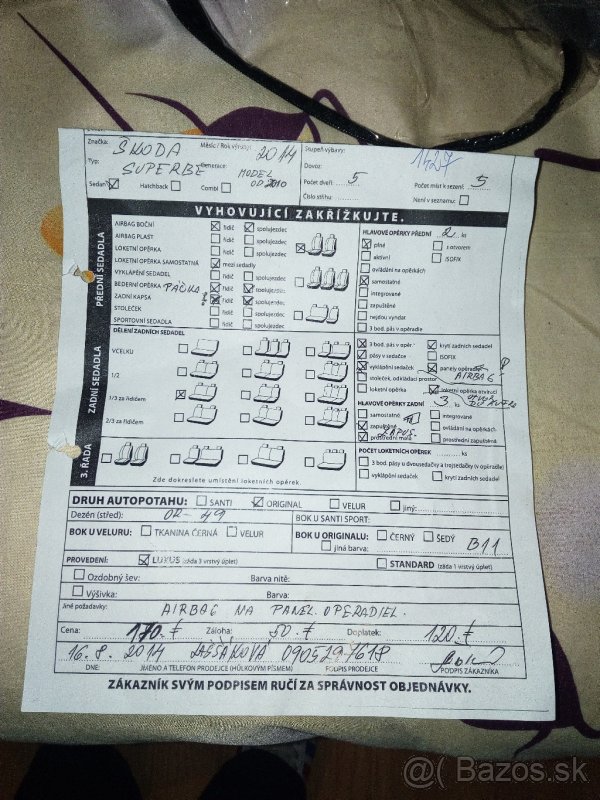 Značka: ŠKODA Měsíc / Rok výroby: 2014 Stupeň výbavy:
Typ: SUPERBE Generace: MODEL OD 2010 Dovoz: 1427
Počet dveří: 5 Počet míst k sezení: 5
Sedan Hatchback Combi Číslo střihu: Není v seznamu:
VYHOVUJÍCÍ ZAKŘÍŽKUJTE.
PŘEDNÍ SEDADLA
AIRBAG BOČNÍ řidič spolujezdec
AIRBAG PLAST řidič spolujezdec
LOKETNÍ OPĚRKA řidič spolujezdec
LOKETNÍ OPĚRKA SAMOSTATNÁ mezi sedadly
VYKLÁPĚNÍ SEDADEL řidič spolujezdec
BEDERNÍ OPĚRKA PAČKA řidič spolujezdec
ZADNÍ KAPSA řidič spolujezdec
STOLEČEK řidič spolujezdec
SPORTOVNÍ SEDADLA řidič spolujezdec
HLAVOVÉ OPĚRKY PŘEDNÍ 2 ks
plné s otvorem
aktivní ISOFIX
ovládání na opěrkách
samostatné
integrované
zapuštěné
nejdou vyndar
3 bod. pás v opěradle
ZADNÍ SEDADLA
DĚLENÍ ZADNÍCH SEDADEL
VCELKU
1/2
1/3 za řidičem
2/3 za řidičem
3 bod. pás v opěr. krytí zadních sedadel
pásy v sedačce ISOFIX
vyklápění sedaček panely opěradel
stoleček, odkládací prostor AIRBAG
loketní opěrka loketní opěrka uvnitř
HLAVOVÉ OPĚRKY ZADNÍ 3
samostatné integrované
zapuštěné ZAPUS. ovládání na opěrkách
prostřední malá prostřední zapuštěná
3. ŘADA
Zde dokreslete umístění loketních opěrek.
POČET LOKETNÍCH OPĚREK ks
3 bod. pásy u dvousedačky a trojsedačky (v opěradle)
vyklápění sedaček krytí zadních sedadel
DRUH AUTOPOTAHU: SANTI ORIGINAL VELUR jiný:
Dezén (střed): OR-49 BOK U SANTI SPORT:
BOK U VELURU: TKANINA ČERNÁ VELUR BOK U ORIGINALU: ČERNÝ ŠEDÝ
jiná barva: B11
PROVEDENÍ: LUXUS (záda 3 vrstvý úplet) STANDARD (záda 1 vrstvý úplet)
Ozdobný šev: Barva nitě:
Výšivka: Barva:
Jiné požadavky: AIRBAG NA PANEL. OPERADIEL.
Cena: 170.€ Záloha: 50.€ Doplatek: 120.€
16. 8. 2014
DNE: JMÉNO A TELEFON PRODEJCE (HŮLKOVÝM PÍSMEM) PODPIS PRODEJCE PODPIS ZÁKAZNÍKA
ZÁKAZNÍK SVÝM PODPISEM RUČÍ ZA SPRÁVNOST OBJEDNÁVKY.
@( Bazos.sk